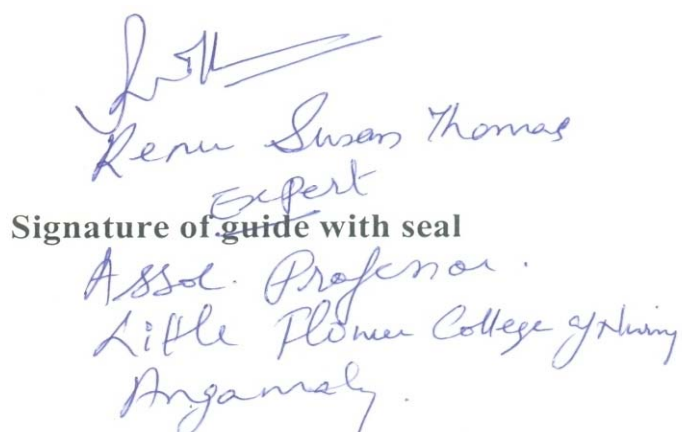 Renu Susan Thomas
Expert
Signature of guide with seal
Assoc. Professor.
Little Flower College of Nursing
Angamaly.